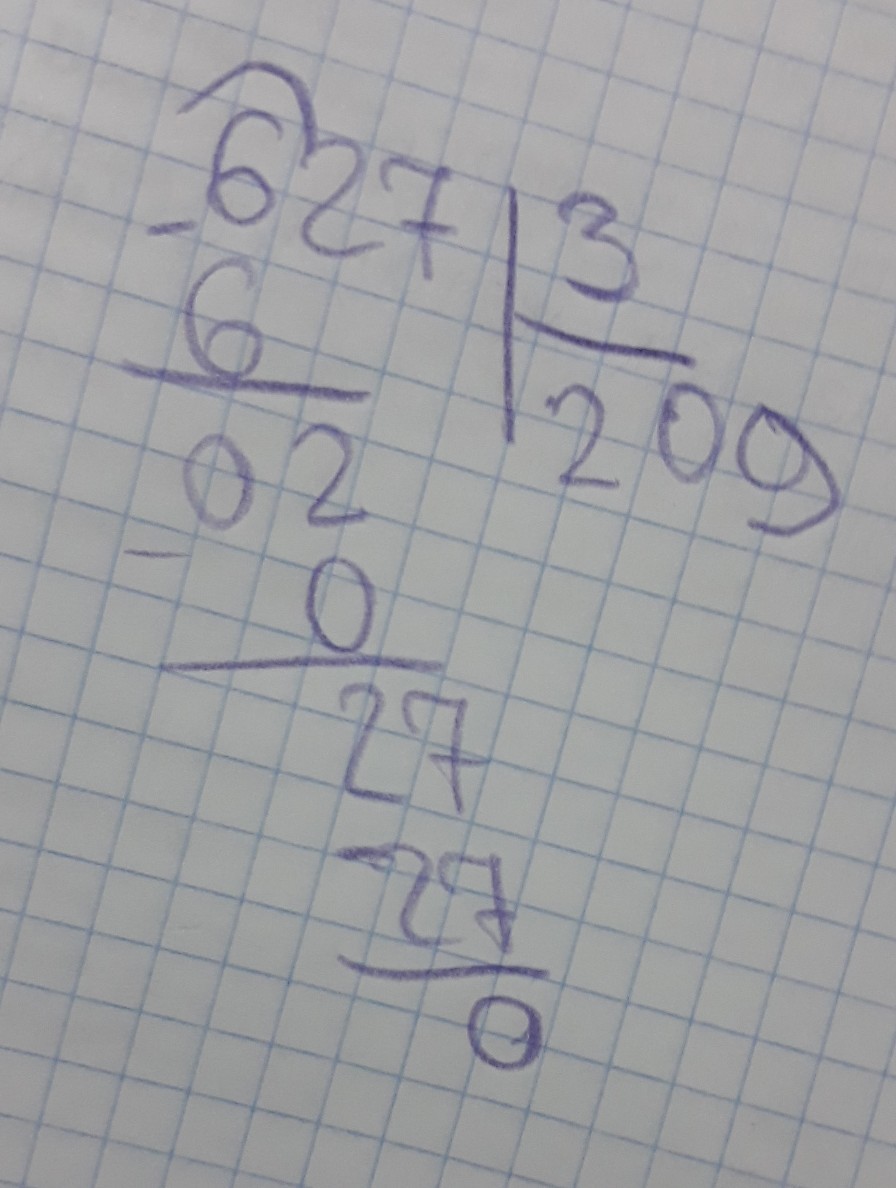 -627 | 3
6 209
02
- 0
27
- 27
0